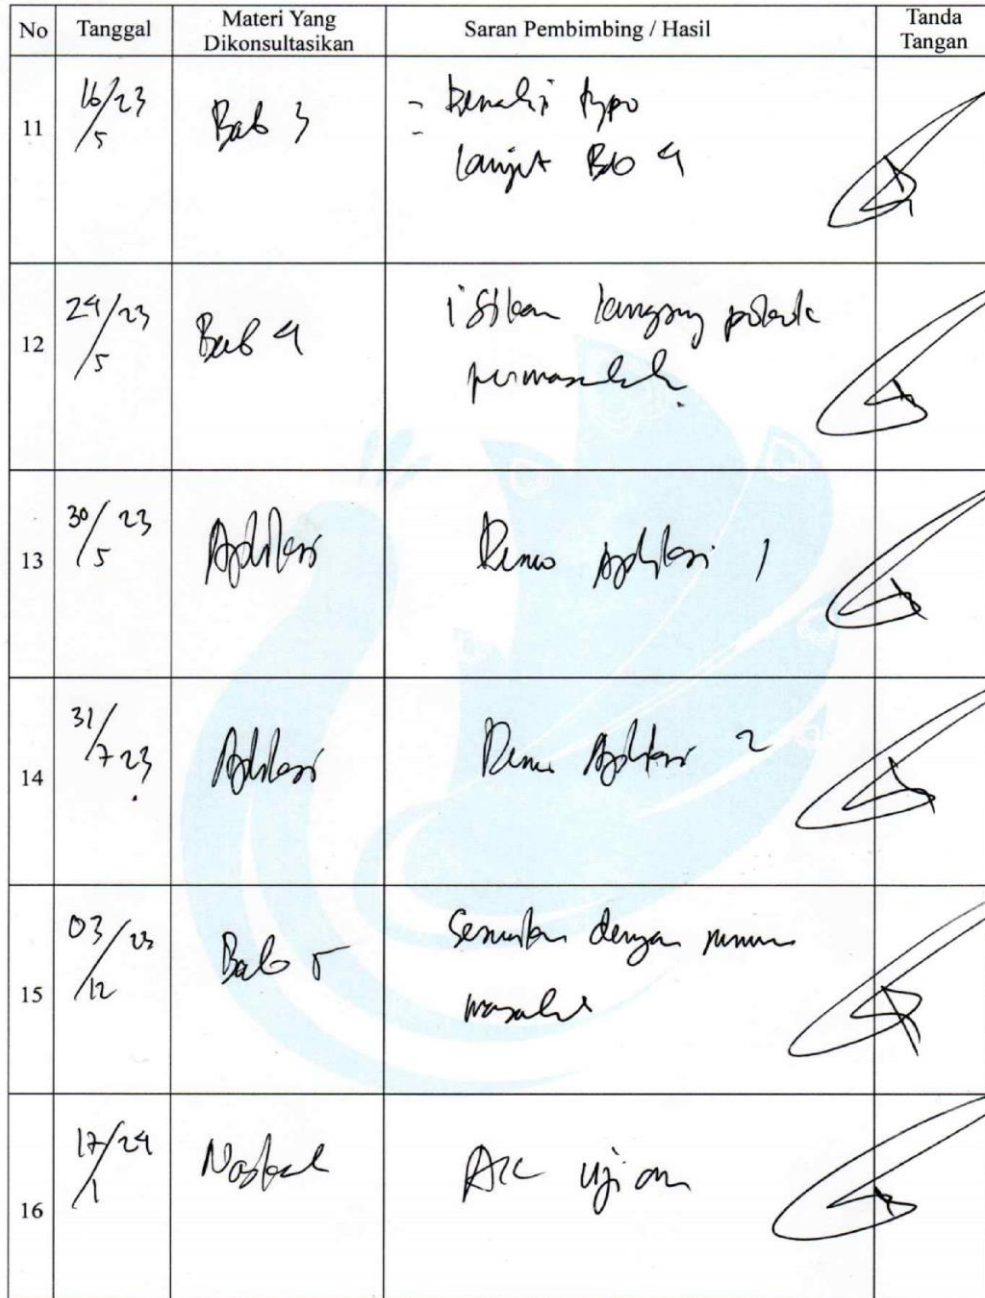 No Tanggal Materi Yang Dikonsultasikan Saran Pembimbing / Hasil Tanda Tangan
11 16/5 23 Bab 3 - benahi typo
- lanjut Bab 4
12 24/5 23 Bab 4 isikan langsung pokok
permasalah
13 30/5 23 Aplikasi Demo Aplikasi 1
14 31/7 23 Aplikasi Demo Aplikasi 2
15 03/12 23 Bab 5 Sesuaikan dengan rumusan
masalah
16 17/1 24 Naskah ACC ujian